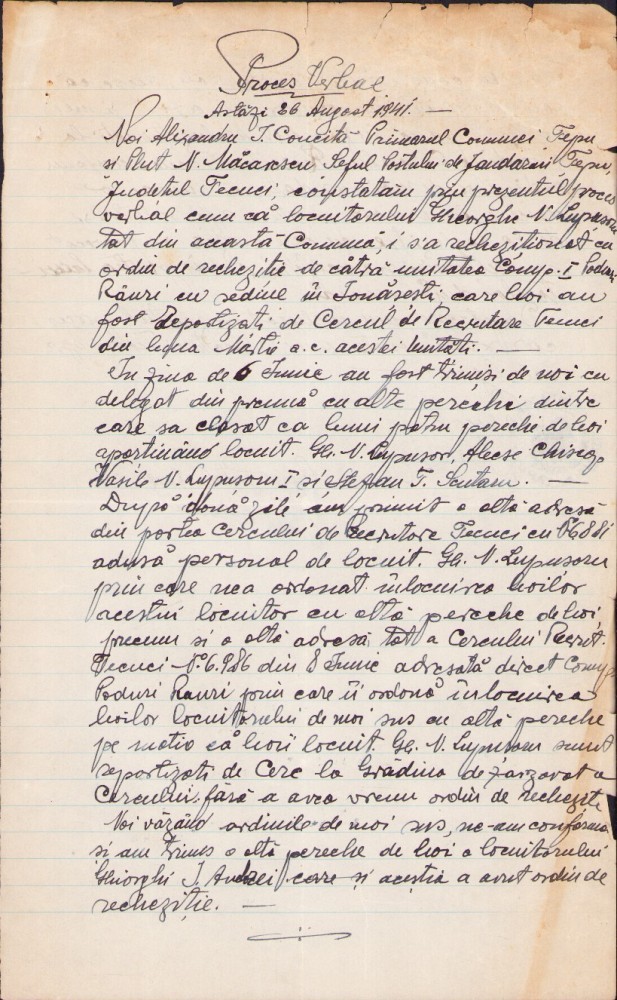 Proces Verbal
Astăzi 26 August 1941. —
Noi Alixandru I. Concită Primarul Comunei Țepu
si Plut N. Măcărescu Seful Postului de Jandarmi Țepu,
Județul Tecuci, constatăm prin prezentul proces
verbal cum că locuitorului Gheorghe N. Lupusoru
tot din această Comună, i s'a rechiziționat cu
ordin de rechiziție de cătră unitatea Comp. I Poduri
Râuri cu sediul în Ionășești, care boi au
fost repartizați de Cercul de Recrutare Tecuci
din luna Martie a.c. acestei Unităti. —
In ziua de 6 Iunie au fost trimisi de noi cu
delegat din preună cu alte perechi dintre
care sa clasat ca buni patru perechi de boi
aparținând locuit. Gh. N. Lupusor, Alecse
Vasile N. Lupusoru I si Stefan T. —
După două zile am primit o altă adresă
din partea Cercului de Recrutare Tecuci cu
adusă personal de locuit. Gh. N. Lupusoru
prin care nea ordonat înlocuirea boilor
acestui locuitor cu altă pereche de boi,
precum si o altă adresă tot a Cercului Recrut.
Tecuci N: 6.986 din 8 Iunie adresată direct Comp.
Poduri Rauri prin care îi ordonă înlocuirea
boilor locuitorului de mai sus cu altă pereche
pe motiv că boii locuit. Gh. N. Lupusoru sunt
repartizați de Cerc la Grădina de zarzavat a
Cercului, fără a avea vreun ordin de rechiziție
Noi văzând ordinile de mai sus, ne-am conformat
si am trimis o altă pereche de boi a locuitorului
Gheorghi I. Andrei care și acestia a avut ordin de
rechiziție. —